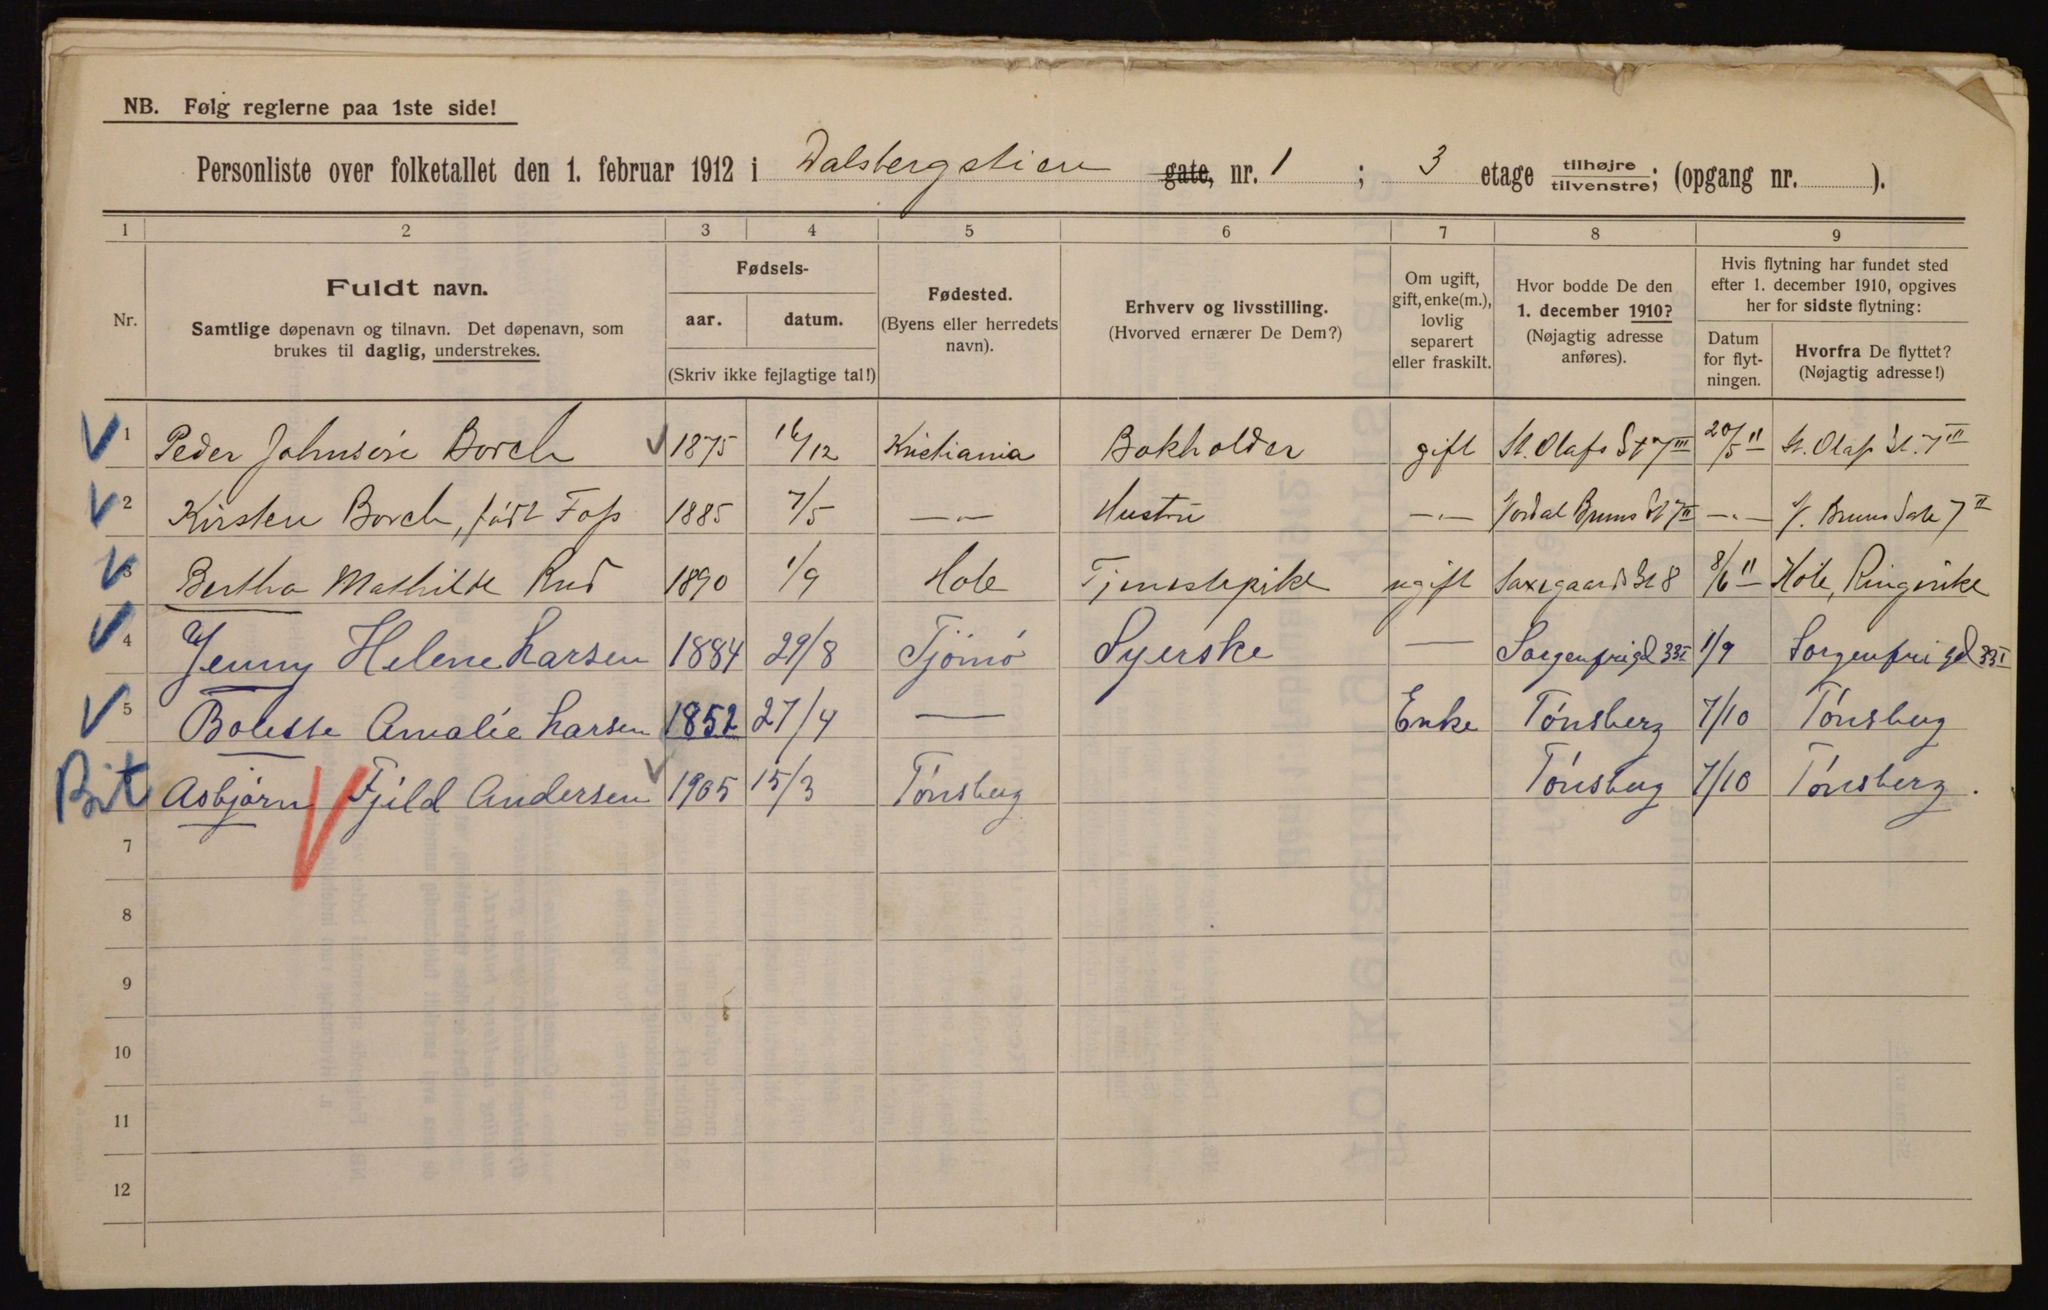 NB. Følg reglerne paa 1ste side!
Personliste over folketallet den 1. februar 1912 i Dalsbergstien gate, nr. 1; 3 etage tilhøjre tilvenstre; (opgang nr. ).
1 2 3 4 5 6 7 8 9
Nr.
Fuldt navn.
Samtlige døpenavn og tilnavn. Det døpenavn, som
brukes til daglig, understrekes.
Fødsels-
aar. datum.
(Skriv ikke fejlagtige tal!)
Fødested.
(Byens eller herredets
navn).
Erhverv og livsstilling.
(Hvorved ernærer De Dem?)
Om ugift,
gift, enke(m.),
lovlig
separert
eller fraskilt.
Hvor bodde De den
1. december 1910?
(Nøjagtig adresse
anføres).
Hvis flytning har fundet sted
efter 1. december 1910, opgives
her for sidste flytning:
Datum
for flyt-
ningen.
Hvorfra De flyttet?
(Nøjagtig adresse!)
1 Peder Johnsen Borch 1875 16/12 Kristiania Bokholder gift St. Olafs Gt 7 III 20/5 11 St. Olafs Gt. 7 III
2 Kirsten Borch, født Foss 1885 7/5 —„— Hustru —„— Bruns Gt 7 II —„— J. Bruns Gate 7 II
3 Bertha Mathilde Rud 1890 1/9 Hole Tjenestepike ugift Saxegaards Gt 8 8/6 11 Hole, Ringerike
4 Jenny Helene Larsen 1884 29/8 Tjömö Syerske — Sorgenfrigd 33 I 1/9 Sorgenfri gd 33 I
5 Bolette Amalie Larsen 1852 27/4 — Enke Tönsberg 7/10 Tönsberg
Bit 6 Asbjørn Fjeld Andersen 1905 15/3 Tönsberg Tönsberg 7/10 Tönsberg.
7
8
9
10
11
12